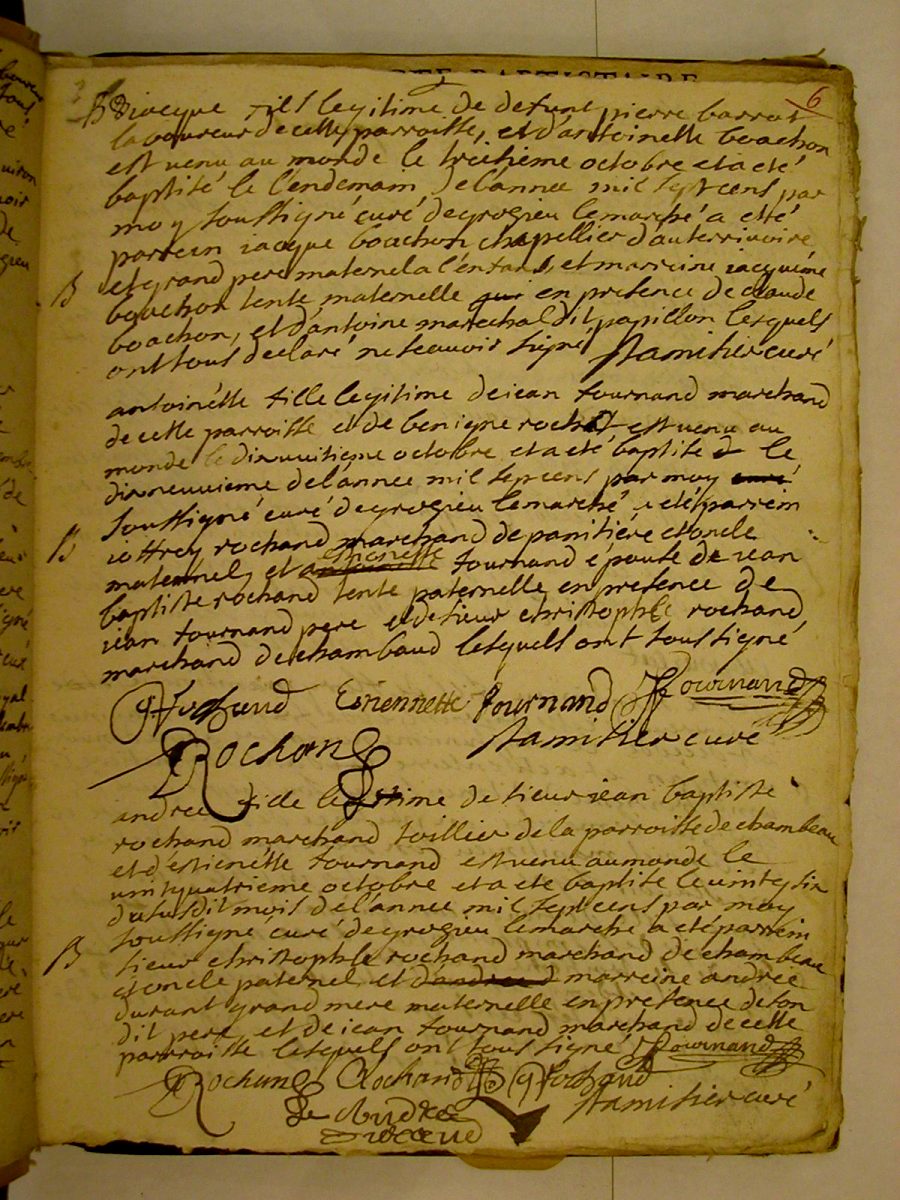 6
B iacque fils legitime de defunt pierre barrat
laboureur de cette parroisse, et d'antoinette boachon
est venu au monde le treitieme octobre et a eté
baptisé le l'endemain de l'annee mil sept cens par
moy soussigné curé de grogieu le marché a etté
parrein iacque boachon chapellier d'auterrivoire
et grand pere maternel a l'enfant, et marreine iacqueme
B
boachon tente maternelle en presence de claude
boachon, et d'antoine marechal dit papillon lesquels
ont tous declaré ne scauoir signé stamisier curé
antoinette fille legitime de iean fournand marchand
de cette parroisse et de benigne rochat est venu au
monde le dixuuitieme octobre et a eté baptisé le
dixneuuieme de l'annee mil septcens par moy curé
soussigné curé de grogieu le marché a eté parrein
B
ioffrey rochand marchand de panissière et oncle
maternel, et antoinette etiennette fournand epouse de iean
baptiste rochand tente paternelle en presence de
iean fournand pere et de sieur christophle rochand
marchand de chambaud lesquels ont tous signé
Rochand Estiennette fournand Fournand
Rochand stamisier curé
andree fille legitime de sieur iean baptiste
rochand marchand toillier de la parroisse de chambeau
et d'estienette fournand est venu au monde le
uint quatrieme octobre et a ete baptisé le uintesix
du susdit mois de l'annee mil sept cens par moy
soussigne curé de grogieu le marche a eté parrein
B
sieur christophle rochand marchand de chambeau
et oncle paternel et marreine andrée
durant grand mere maternelle en presence de son
dit pere, et de iean fournand marchand de cette
parroisse lesquels ont tous signé Fournand
Rochand Rochand Rochand
stamisier curé